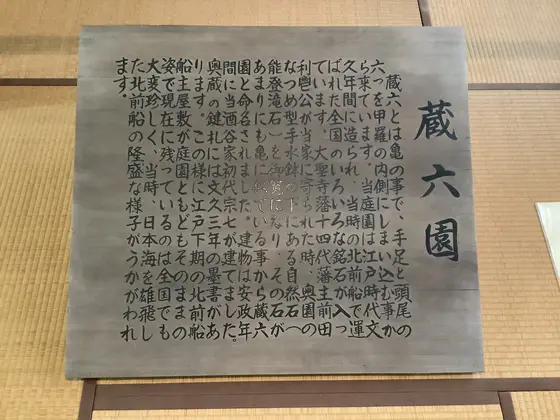 蔵六園
蔵六とは亀の事で、手足と頭尾の
六つを甲羅の内にしまい込む事か
ら來ています。当庭園は江戸時代文
久年間に造られ、当時の北前船で運
ばれた全国のいろいろな銘石が入っ
ています。大聖寺藩十四代藩主前田
利鬯公が当家に寄られた時、奥園の
なつめ型手水鉢の下にある自然石(
能登滝石)を御覧になり、その石が
あまりにも亀に似ている事から蔵六
園と命名されました。建物は安政年
間に当酒谷家初代宗七が建てました。
奥蔵の鍵には文久三年の墨書があ
ります。この様に江戸下期の北前船
船主屋敷が庭園ともどもそのままの
姿で現在に残っているのは全国でも
大変珍しく、当時、日本海を雄飛し
た北前船の隆盛な様子がうかがわれ
ます。